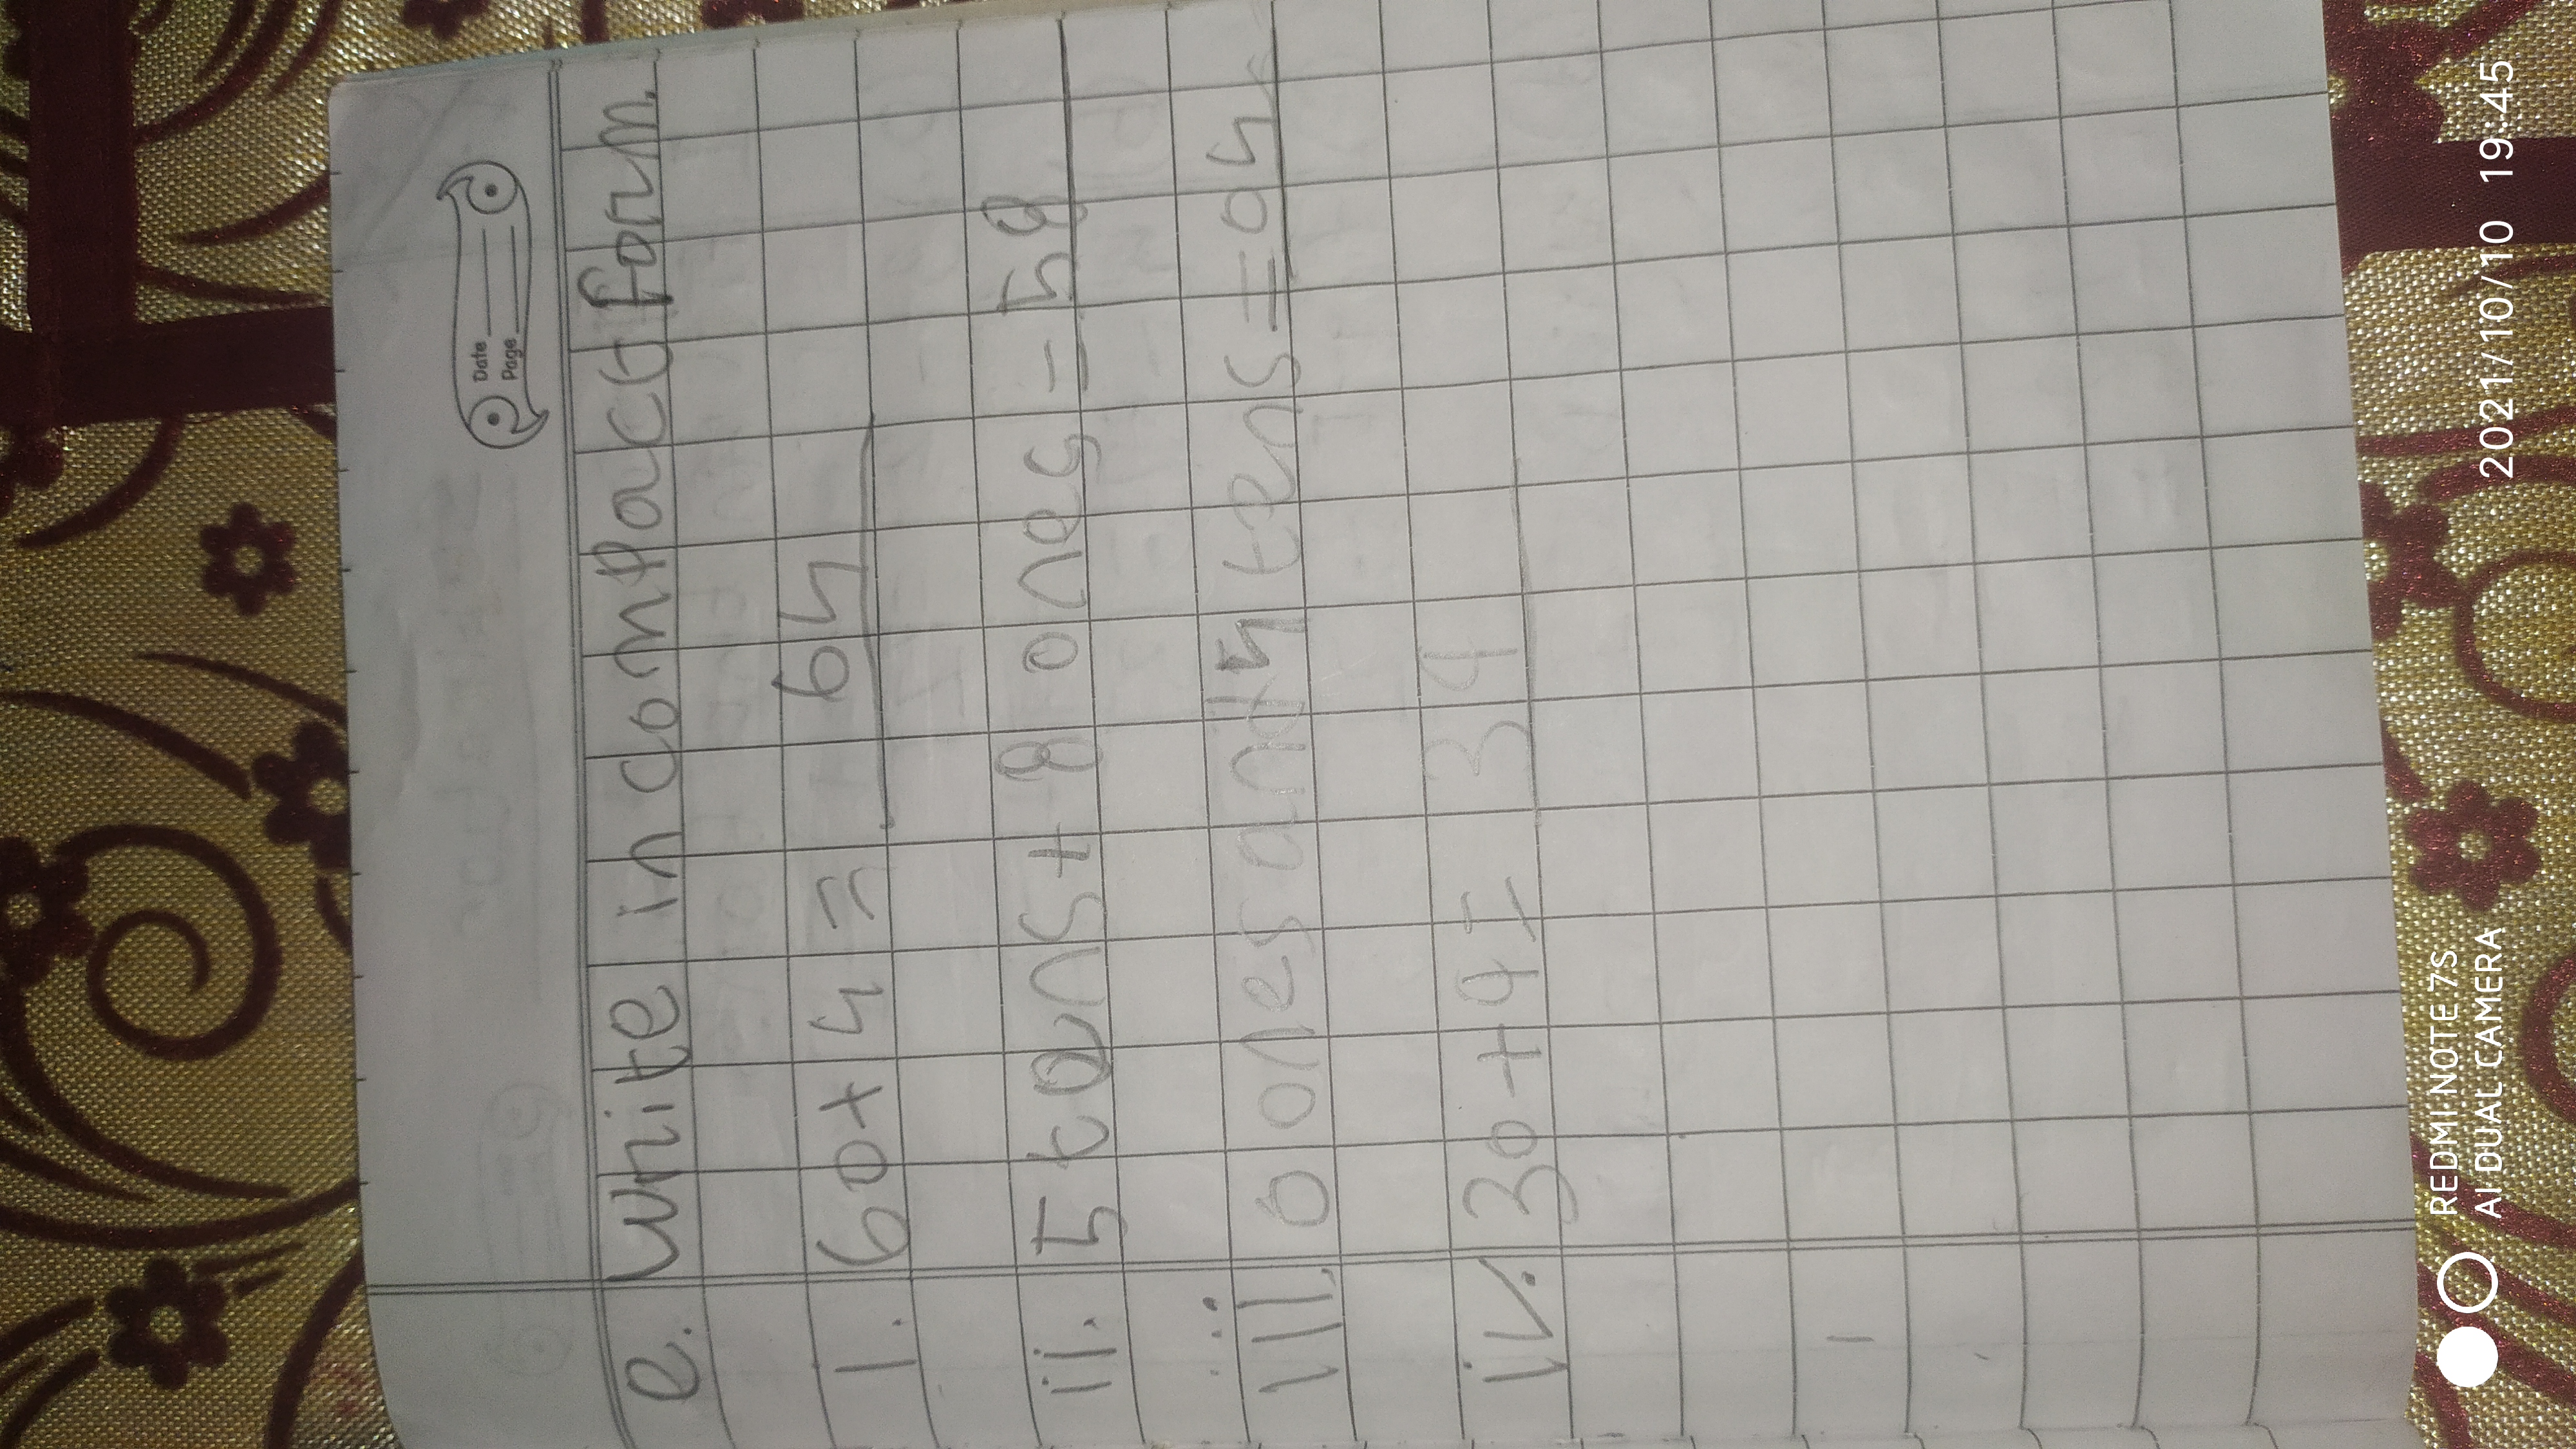 Date
Page
e. Write in compact form.
i. 60+4 = 64
ii. 5 tens + 8 ones = 58
iii. 0 ones and 4 tens = 04
iv. 30+4= 34
REDMI NOTE 7S
AI DUAL CAMERA
2021/10/10 19:45